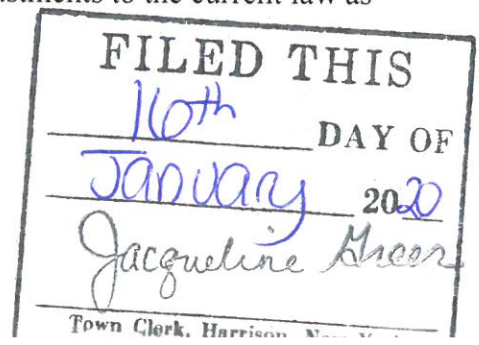 stments to the current law as
FILED THIS
16th DAY OF
January 2020
Jacqueline Greer
Town Clerk, Harrison, New York